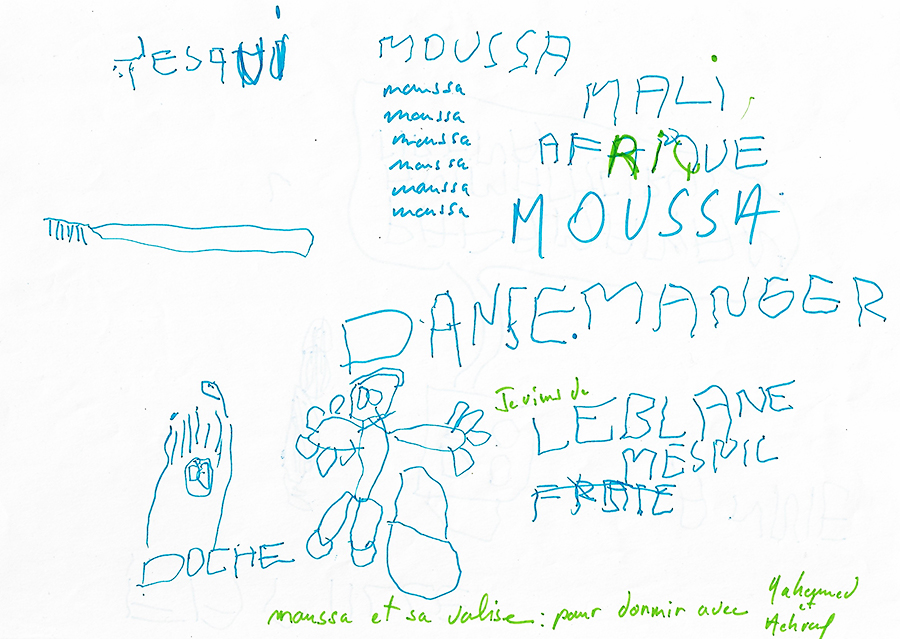 TESQUI
MOUSSA
moussa
moussa
moussa
moussa
moussa
moussa
MALI
AFRIQUE
MOUSSA
DANSE.MANGER
Je viens de
LEBLANE
MESNIL
DOCHE
moussa et sa valise : pour dormir avec Mahaymed
et
Achraf